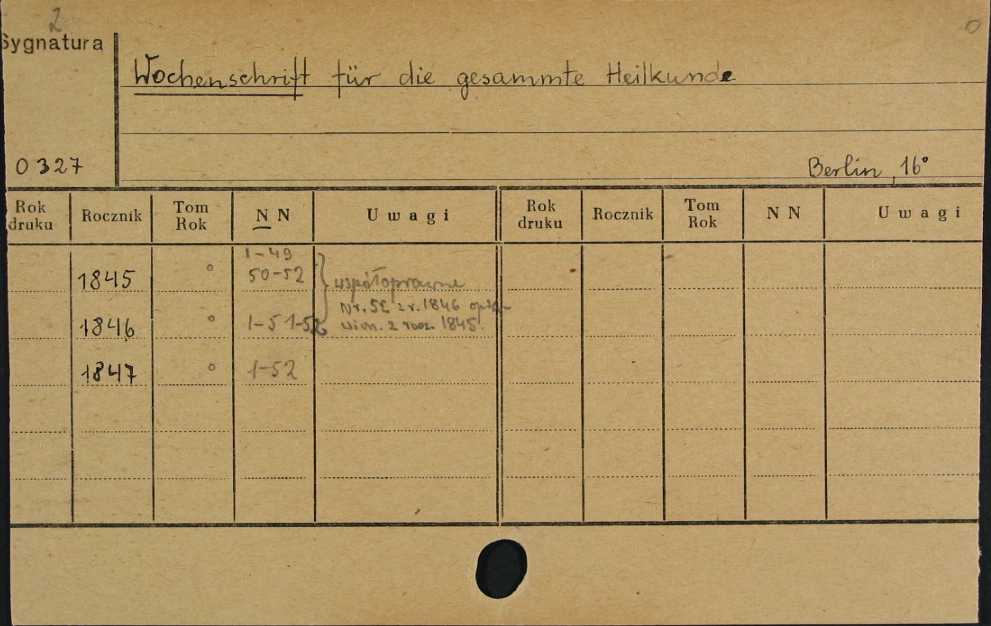 2
Sygnatura
0
Wochenschrift für die gesammte Heilkunde
0327
Berlin, 16°
Rok druku Rocznik Tom Rok N N Uwagi Rok druku Rocznik Tom Rok N N Uwagi
1-49
1845 ° 50-52 współoprawne
Nr. 52 z r. 1846
1846 ° 1-51 1-52 z rocz. 1845.
1847 ° 1-52